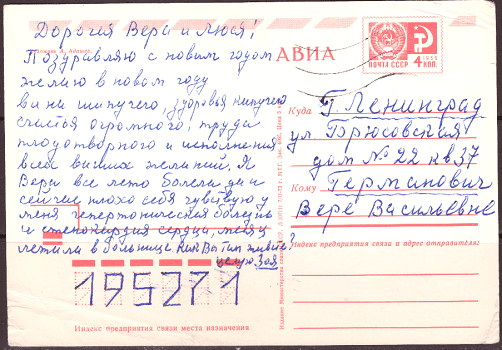 Дорогия Вера и Люся!
Поздравляю с новым годом
желаю в новом году
вина шипучего, здоровья кипучего
счастья огромного, труда
плодотворного и исполнения
всех ваших желаний. Я
Вера все лето болела да и
сейчас плохо себя чувствую у
меня гепертоническая болезнь
и стенокардия сердца, месяц
лежала в больнице Как Вы там живете?
целую Зоя
195271
Индекс предприятия связи места назначения
АВИА
ПОЧТА СССР
4 КОП.
Куда
Г. Ленинград
ул Брюсовская
дом № 22 кв 37
Кому
Германович
Вере Васильевне
Индекс предприятия связи и адрес отправителя: